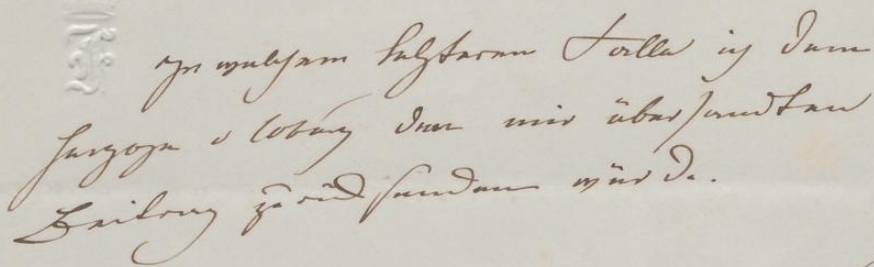 In welchem letzteren Falle ich dem
Herzoge v Coburg den mir übersandten
Beitrag zurücksenden würde.